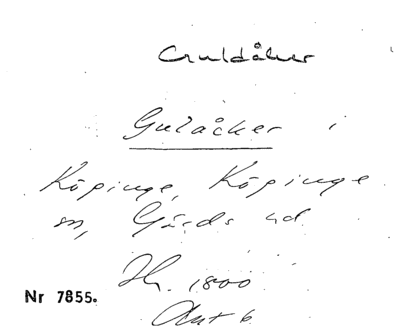 Guldåker
Gulåcker i
Köpinge, Köpinge
sn, Gärds hd
Jb. 1800
Ant 6
Nr 7855.